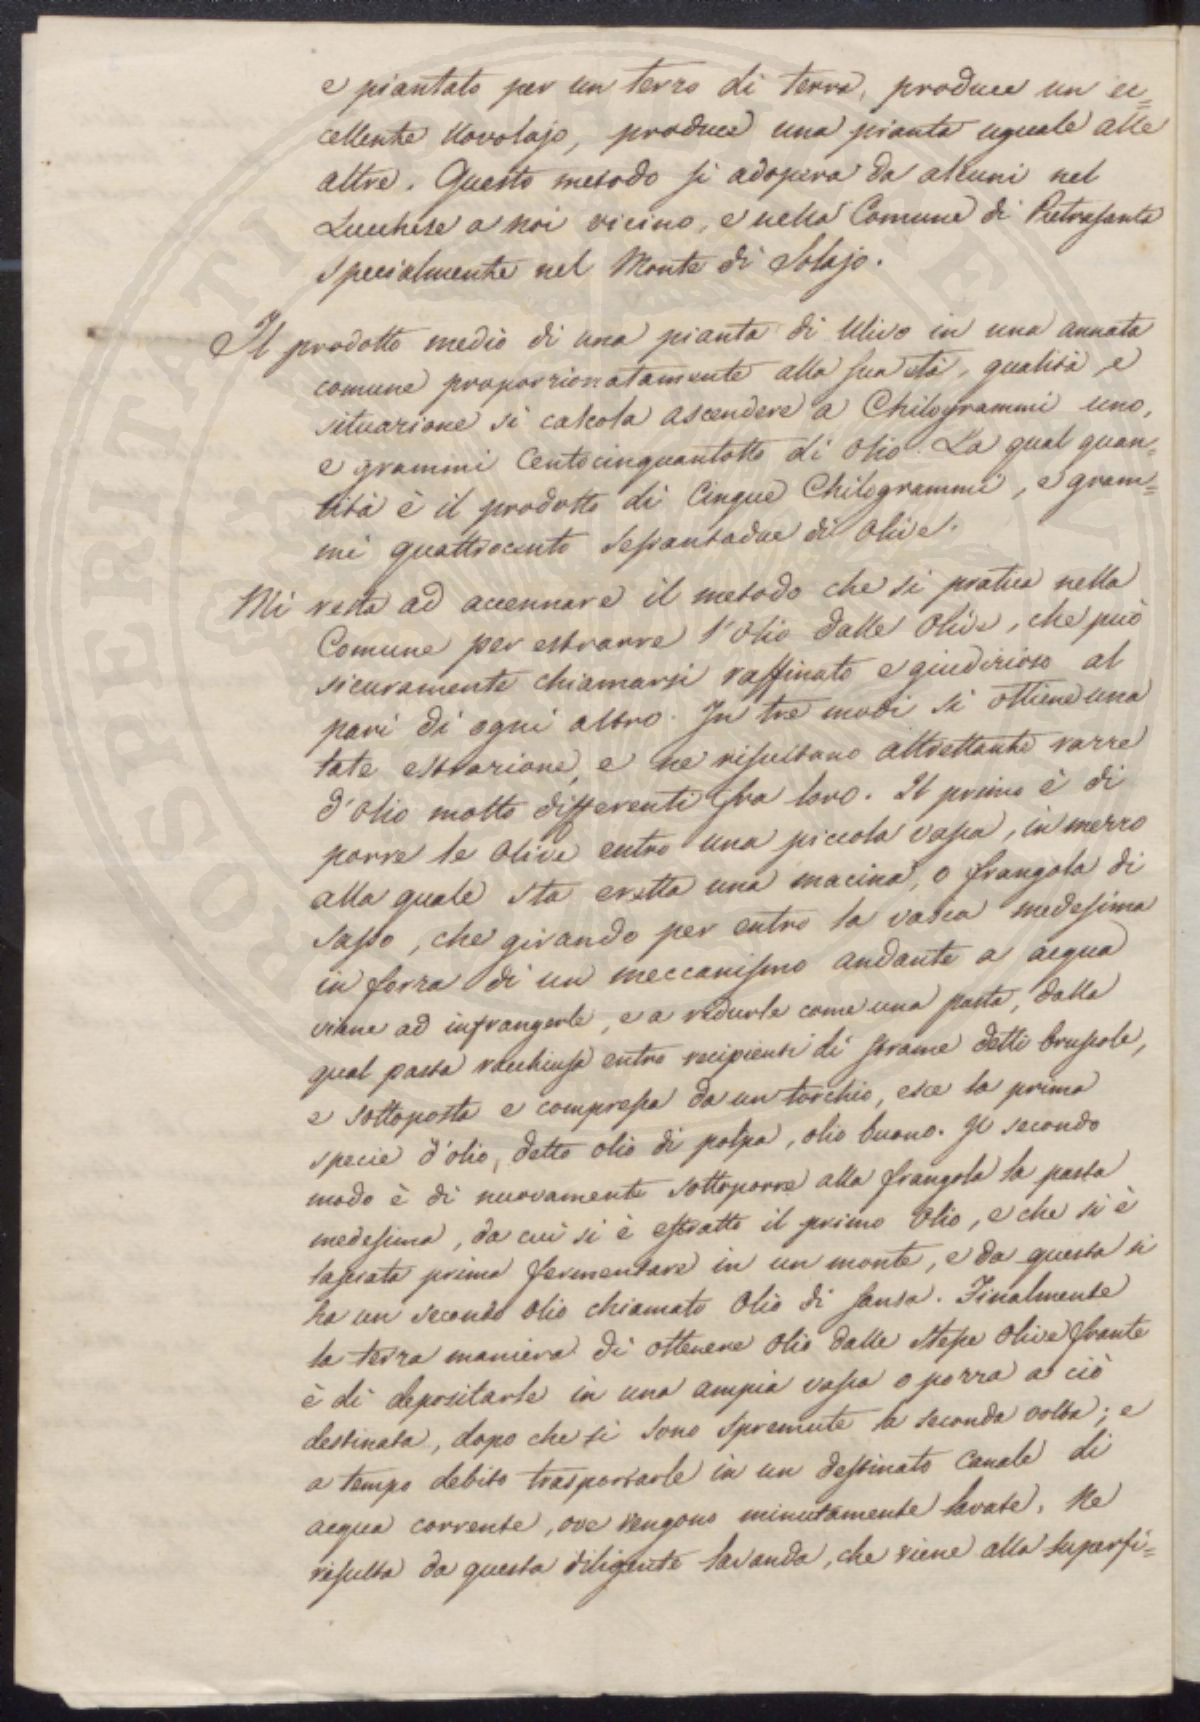 e piantato per un terzo di terra, produce un ec=
cellente Novolajo, produce una pianta uguale alle
altre. Questo metodo si adopera da alcuni nel
Lucchese a noi vicino, e nella Comune di Pietrasanta
specialmente nel Monte di Solajo.
Il prodotto medio di una pianta di Ulivo in una annata
comune proporzionatamente alla sua età, qualità, e
situazione si calcola ascendere a Chilogrammi uno,
e grammi Centocinquantotto di Olio. La qual quan=
tità è il prodotto di Cinque Chilogrammi, e gram=
mi quattrocento sessantadue di Olive.
Mi resta ad accennare il metodo che si pratica nella
Comune per estrarre l'Olio dalle Olive, che può
sicuramente chiamarsi raffinato e giudizioso al
pari di ogni altro. In tre modi si ottiene una
tale estrazione, e ne risultano altrettante razze
d'Olio molto differenti fra loro. Il primo è di
porre le Olive entro una piccola vasca, in mezzo
alla quale sta eretta una macina, o frangola di
sasso, che girando per entro la vasca medesima
in forza di un meccanismo andante a acqua
viene ad infrangerle, e a ridurle come una pasta, dalla
qual pasta racchiusa entro recipienti di strame detti bruscole,
e sottoposta e compressa da un torchio, esce la prima
specie d'olio, detto olio di polpa, olio buono. Il secondo
modo è di nuovamente sottoporre alla frangola la pasta
medesima, da cui si è estratto il primo Olio, e che si è
lasciata prima fermentare in un monte, e da questa si
ha un secondo olio chiamato Olio di sansa. Finalmente
la terza maniera di ottenere Olio dalle stesse Olive frante
è di depositarle in una ampia vasca o pozza a ciò
destinata, dopo che si sono spremute la seconda volta; e
a tempo debito trasportarle in un destinato Canale di
acqua corrente, ove vengono minutamente lavate. Ne
risulta da questa diligente lavanda, che viene alla superfi=
PROSPERITATI